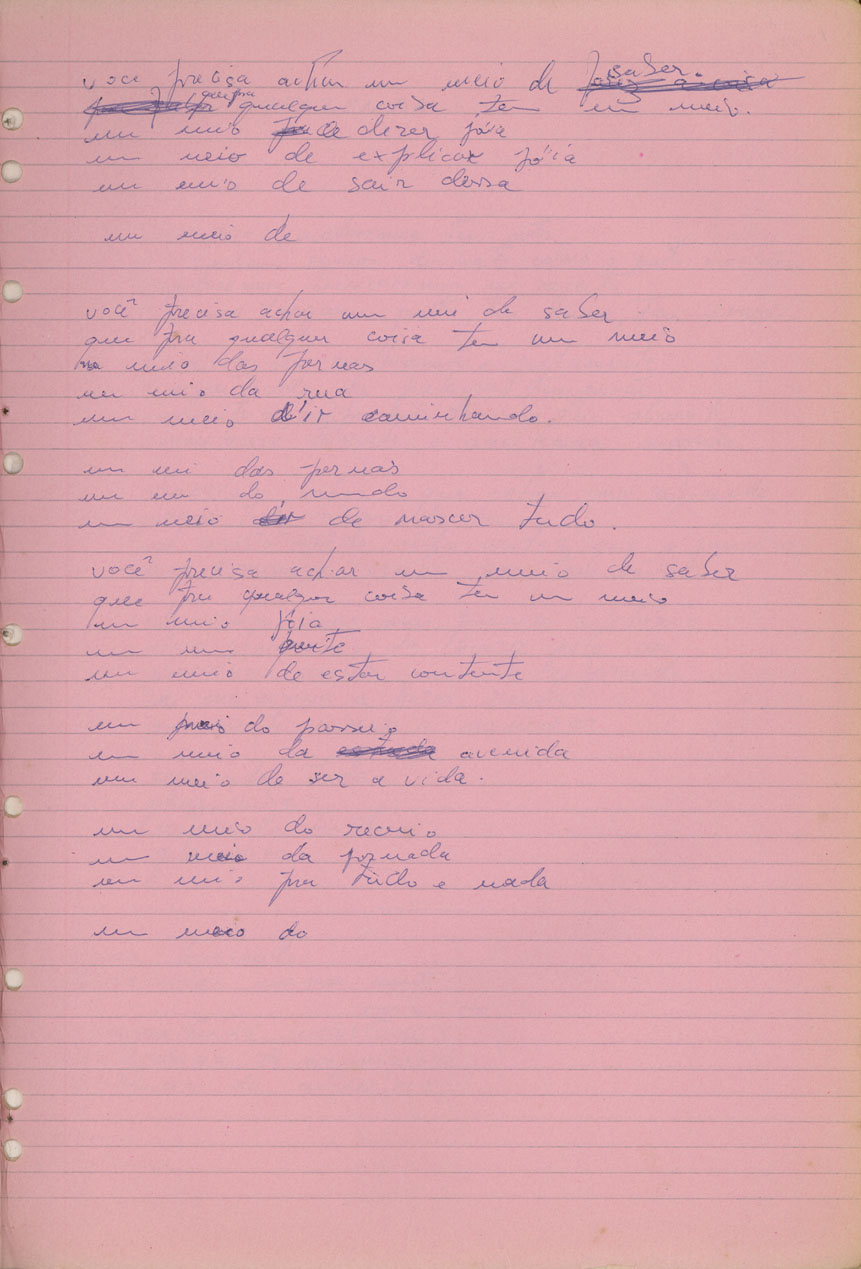 voce precisa achar um meio de saber
que pra qualquer coisa tem um meio.
um meio de dizer jóia
um meio de explicar jóia
um meio de sair dessa
um meio de
você precisa achar um mei de saber
que pra qualquer coisa tem um meio
no meio das pernas
um meio da rua
um meio d'ir caminhando.
um mei das pernas
um mei do mundo
um meio de nascer tudo.
você precisa achar um meio de saber
que pra qualquer coisa tem um meio
um meio jóia
um meio
um meio de estar contente
um meio do passeio
um meio da avenida
um meio de ser a vida.
um meio do recreio
um meio da
um meio pra tudo e nada
um meio do